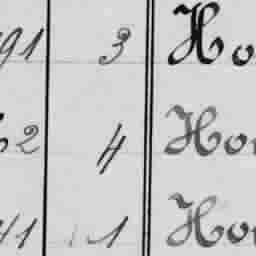 91 3 Ho
2 4 Ho
41 1 Ho